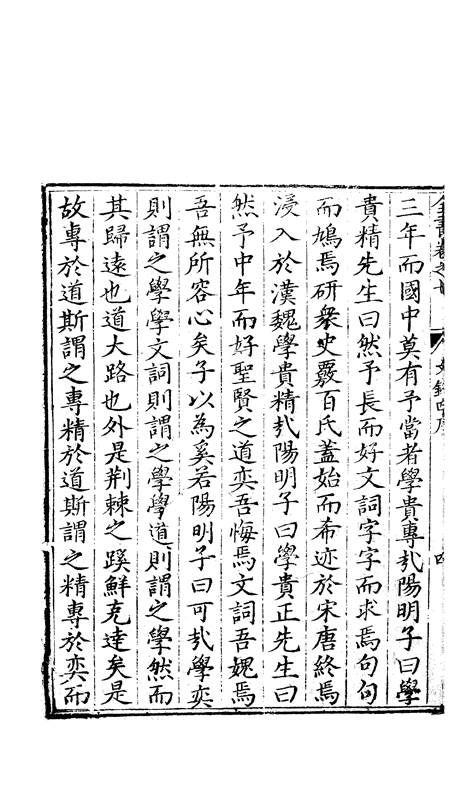 三年而國中莫有予當者學貴專㢤陽明子曰學
貴精先生曰然予長而好文詞字字而求焉句句
而鳩焉研衆史覈百氏蓋始而希迹於宋唐終焉
浸入於漢魏學貴精㢤陽明子曰學貴正先生曰
然予中年而好聖賢之道奕吾悔焉文詞吾媿焉
吾無所容心矣子以為奚若陽明子曰可㢤學奕
則謂之學學文詞則謂之學學道則謂之學然而
其歸遠也道大路也外是荆棘之蹊鮮克達矣是
故專於道斯謂之專精於道斯謂之精專於奕而
全書卷之七
文錄四序
四